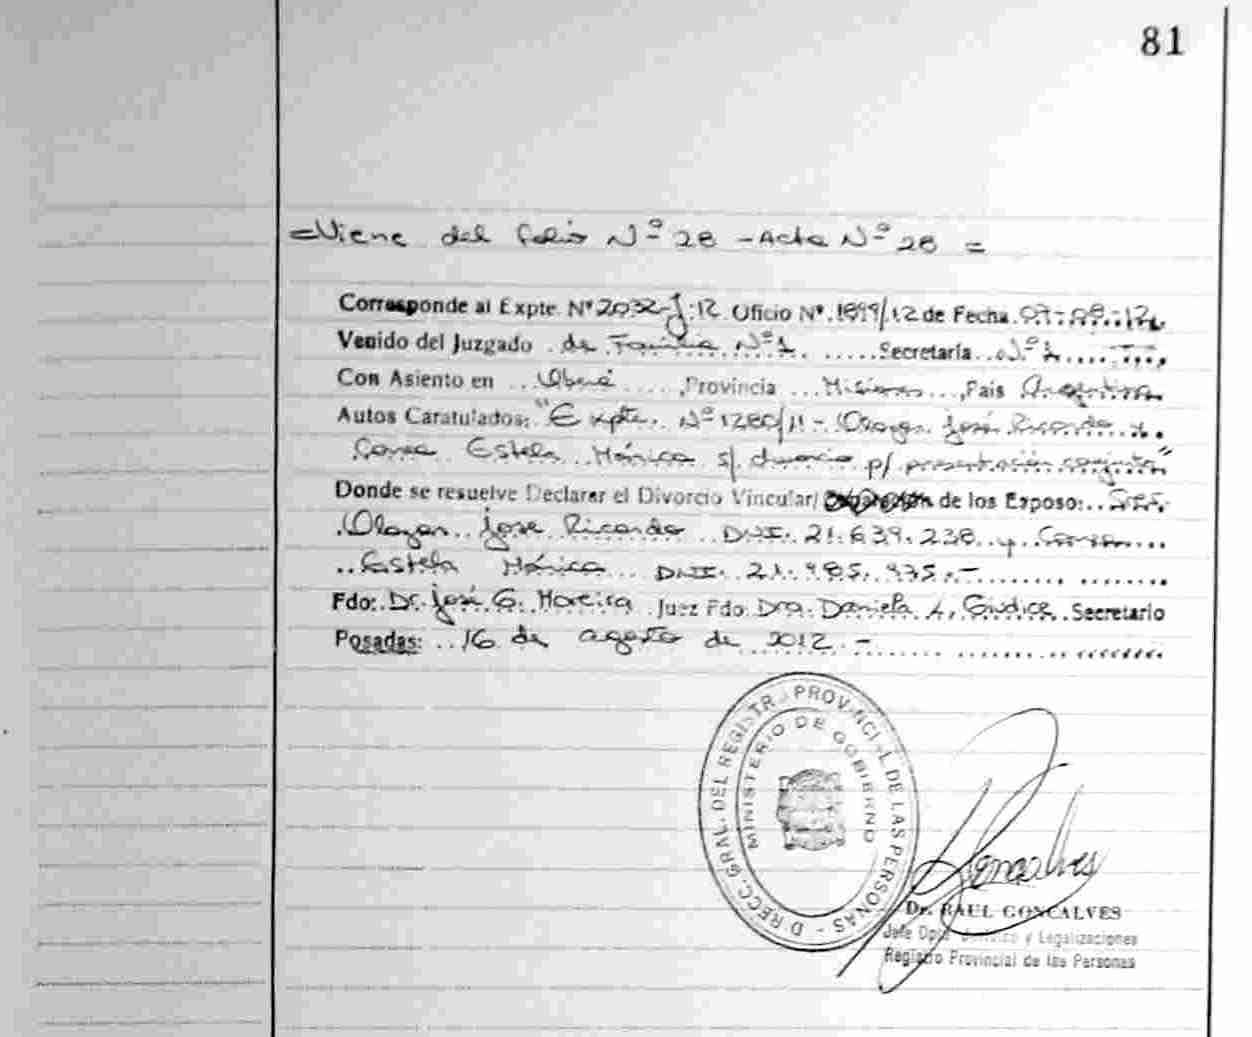 81
=Viene del folio Nº 28 - Acta Nº 28 =
Corresponde al Expte. Nº 2032-J-12 Oficio Nº. 1899/12 de Fecha. 07-08-12.
Venido del Juzgado de Familia Nº 1 Secretaría Nº 1
Con Asiento en Oberá, Provincia Misiones, País Argentina
Autos Caratulados: "Expte. Nº 1280/11 - José Ricardo
Estela Mónica s/ divorcio p/ presentación conjunta"
Donde se resuelve Declarar el Divorcio Vincular/ de los Esposo: Sres.
José Ricardo DNI. 21.639.238 y
Estela Mónica DNI. 21.985.935.-
Fdo: Dr. José G. Moreira Juez Fdo Dra. Daniela A. Giudice Secretario
Posadas: 16 de agosto de 2012.-
DIRECC. GRAL. DEL REGISTRO PROVINCIAL DE LAS PERSONAS -
MINISTERIO DE GOBIERNO
Goncalves
Dr. RAUL GONCALVES
Jefe Dpto. y Legalizaciones
Registro Provincial de las Personas